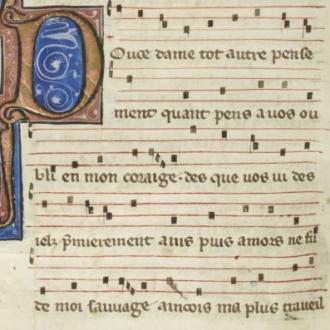 Ouce dame tot autre pense
ment quant pens a uos ou
bli en mon coraige · des que uos ui des
ielz pmierement ains puis amors ne fu
de moi sauuage aincois ma plus traueil